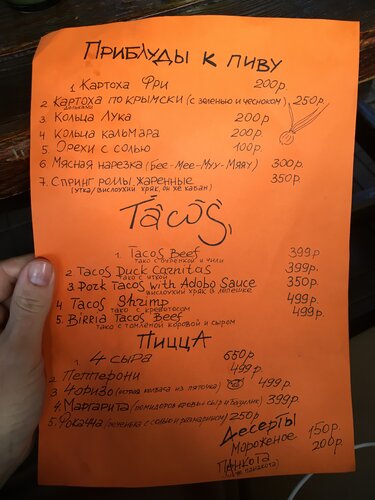 Приблуды к пиву
1. Картоха Фри 200р.
2 Картоха по крымски (с зеленью и чесноком) 250р.
дольками
3. Кольца Лука 200р
4. Кольца кальмара 200р.
5. Орехи с солью 100р.
6 Мясная нарезка (Бее-Мее-Муу-Мяяу) 300р.
7. Спринг роллы жаренные 350р.
(утка/вислоухий хряк, он же кабан)
Tacos
1. Tacos Beef 399р
тако с бурёнкой и чили
2. Tacos Duck Carnitas 399р.
тако с уткой
3. Pork Tacos with Adobo Sauce 350р.
вислоухий хряк в лепёшке
4 Tacos Shrimp 499р.
тако с креветосом
5. Birria Tacos Beef 499р.
тако с томлёной коровой и сыром
Пицца
1. 4 сыра 550р
2. Пепперони 499р.
3 Чоризо (колбаса из пяточка) 499р.
4. Маргарита (помидоров кровь + сыр и базилик) 399р.
5. Фокачча (печенька с солью и розмарином) 250р
Десерты
Мороженое 150р.
Панкота 200р.
(она же панакота)